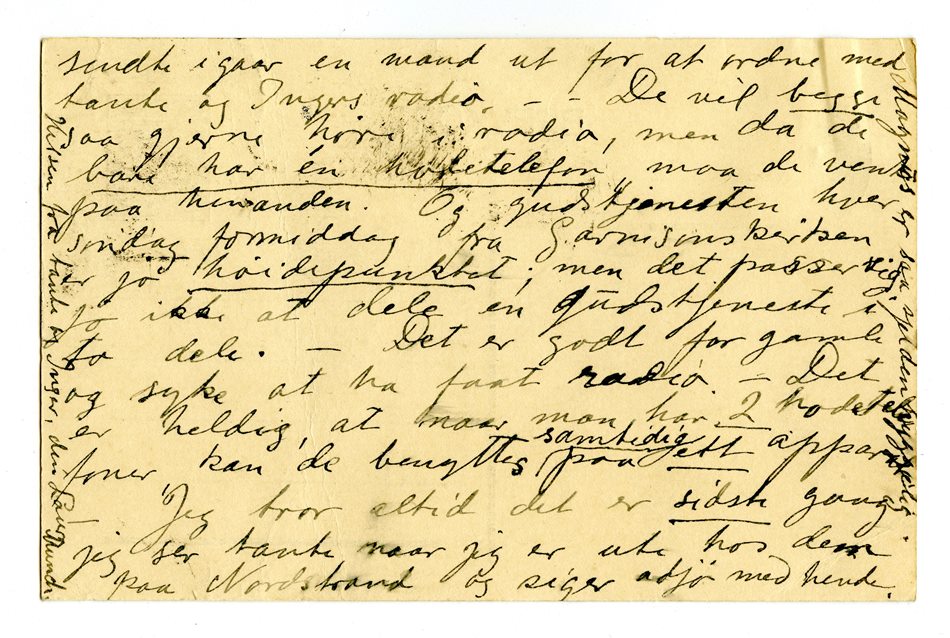 sendte igaar en mand ut for at ordne med
tante og Ingers radio. – – De vil begge
saa gjerne høre i radio, men da de
bare har én hodetelefon, maa de vente
paa hinanden. Og gudstjenesten hver
søndag formiddag fra Garnisonskirken
er jo høidepunktet; men det passer sig
jo ikke at dele en gudstjeneste i
to dele. – Det er godt for gamle
og syke at ha faat radio – Det
er heldig, at naar man har 2 hodetele
foner, kan de benyttes samtidig paa ett apparat
– Jeg tror altid det er sidste gang
jeg ser tante naar jeg er ute hos dem
paa Nordstrand og siger adjø med hende.
Hilsen fra tante og Inger, din Laura Munch.
Magnus er saa sjelden